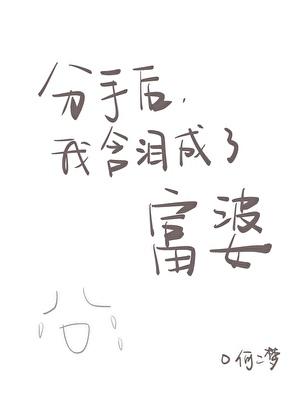 分手后，
我含泪成了
富婆
〇何二梦